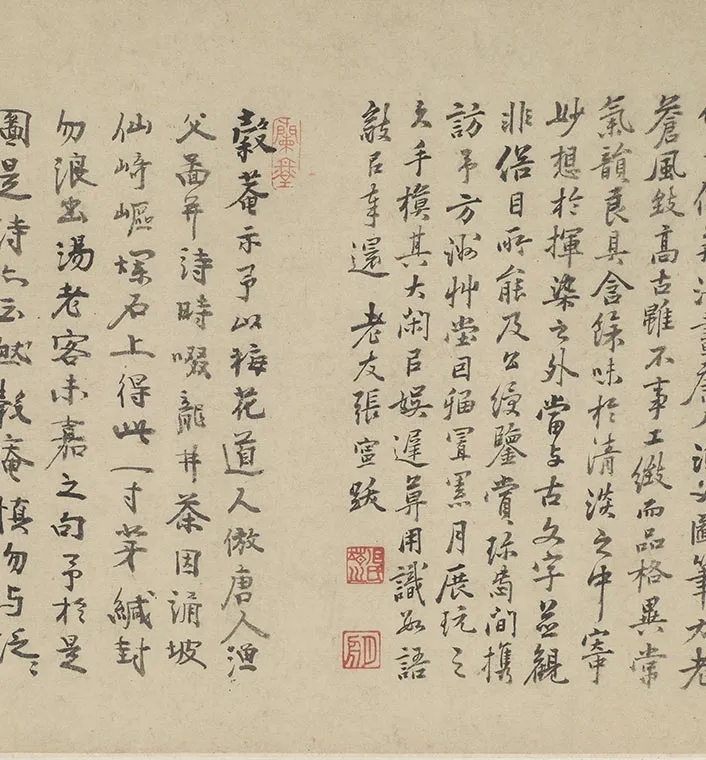 唐人漁父圖筆力老
蒼風致高古雖不事工緻而品格異常
氣韻良具含餘味於清淡之中寄
妙想於揮染之外當与古文字並觀
非俗目所能及公綬鑒賞珎間携
訪予方洲艸堂月展玩之
久手模其大閑以娱遲算用識數語
以奉還 老友張寧跋
榖菴示予以梅花道人倣唐人漁
父圖并詩時啜龍井茶因誦坡
仙崎嶇爛石上得此一寸芽緘封
勿浪出湯老客未嘉之句予於是
圖是詩亦云然榖庵慎勿与泛泛